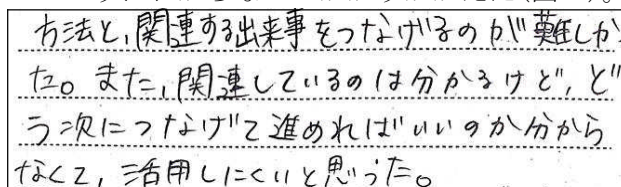 方法と、関連する出来事をつなげるのが難しか
た。また、関連しているのは分かるけど、ど
う次につなげて進めればいいのか分から
なくて、活用しにくいと思った。